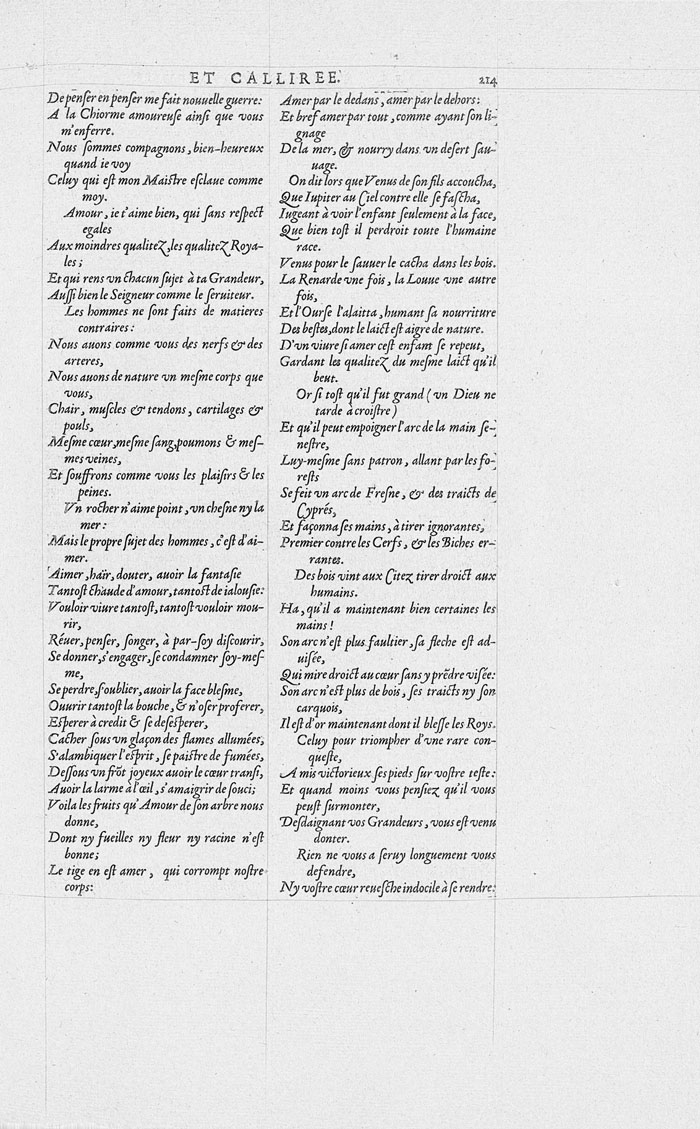 ET CALLIREE.
214
De penſer en penſer me fait nouuelle guerre:
A la Chiorme amoureuſe ainſi que vous
m'enferre.
Nous ſommes compagnons, bien-heureux
quand ie voy
Celuy qui eſt mon Maiſtre eſclaue comme
moy.
Amour, ie t'aime bien, qui ſans reſpect
egales
Aux moindres qualitez, les qualitez Roya-
les;
Et qui rens vn chacun ſujet à ta Grandeur,
Auſſi bien le Seigneur comme le ſeruiteur.
Les hommes ne ſont faits de matieres
contraires:
Nous auons comme vous des nerfs & des
arteres,
Nous auons de nature vn meſme corps que
vous,
Chair, muſcles & tendons, cartilages &
pouls,
Meſme cœur, meſme ſang, poumons & meſ-
mes veines,
Et ſouffrons comme vous les plaiſirs & les
peines.
Vn rocher n'aime point, vn cheſne ny la
mer:
Mais le propre ſujet des hommes, c'eſt d'ai-
mer.
Aimer, haïr, douter, auoir la fantaſie
Tantoſt chaude d'amour, tantoſt de ialouſie:
Vouloir viure tantoſt, tantoſt vouloir mou-
rir,
Réuer, penſer, ſonger, à par-ſoy diſcourir,
Se donner, s'engager, ſe condamner ſoy-meſ-
me,
Se perdre, ſ'oublier, auoir la face bleſme,
Ouurir tantoſt la bouche, & n'oſer proferer,
Eſperer à credit & ſe deſeſperer,
Cacher ſous vn glaçon des flames allumées,
S'alambiquer l'eſprit, ſe paiſtre de fumées,
Deſſous vn frõt joyeux auoir le cœur tranſi,
Auoir la larme à l'œil, s'amaigrir de ſouci;
Voila les fruits qu'Amour de ſon arbre nous
donne,
Dont ny fueilles ny fleur ny racine n'eſt
bonne;
Le tige en eſt amer, qui corrompt noſtre
corps:
Amer par le dedans, amer par le dehors:
Et bref amer par tout, comme ayant ſon li-
gnage
De la mer, & nourry dans vn deſert ſau-
uage.
On dit lors que Venus de ſon fils accoucha,
Que Iupiter au Ciel contre elle ſe faſcha,
Iugeant à voir l'enfant ſeulement à la face,
Que bien toſt il perdroit toute l'humaine
race.
Venus pour le ſauuer le cacha dans les bois.
La Renarde vne fois, la Louue vne autre
fois,
Et l'Ourſe l'alaitta, humant ſa nourriture
Des beſtes, dont le laict eſt aigre de nature.
D'vn viure ſi amer ceſt enfant ſe repeut,
Gardant les qualitez du meſme laict qu'il
beut.
Or ſi toſt qu'il fut grand (vn Dieu ne
tarde à croiſtre)
Et qu'il peut empoigner l'arc de la main ſe-
neſtre,
Luy-meſme ſans patron, allant par les fo-
reſts
Se feit vn arc de Freſne, & des traicts de
Cyprés,
Et façonna ſes mains, à tirer ignorantes,
Premier contre les Cerfs, & les Biches er-
rantes.
Des bois vint aux Citez tirer droict aux
humains.
Ha, qu'il a maintenant bien certaines les
mains!
Son arc n'eſt plus faultier, ſa fleche eſt ad-
uiſée,
Qui mire droict au cœur ſans y prẽdre viſée:
Son arc n'eſt plus de bois, ſes traicts ny ſon
carquois,
Il eſt d'or maintenant dont il bleſſe les Roys.
Celuy pour triompher d'vne rare con-
queſte,
A mis victorieux ſes pieds ſur voſtre teſte:
Et quand moins vous penſiez qu'il vous
peuſt ſurmonter,
Deſdaignant vos Grandeurs, vous eſt venu
donter.
Rien ne vous a ſeruy longuement vous
defendre,
Ny voſtre cœur reueſche indocile à ſe rendre: